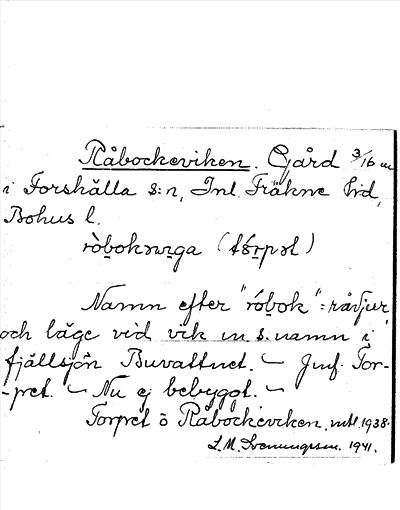 Råbockeviken. Gård 3/16 m
i Forshälla s:n, Inl. Fräkne hrd,
Bohus l.
ròbokəvıga (tɔ́rpət)
Namn efter "róbok" = råbjur,
och läge vid vik m. s. namn i
fjällsjön Buvattnet. – Jmf. Tor-
-pet. – Nu ej bebyggt. –
Torpet ö Råbockeviken, mtl 1938.
L. M. Svenungsson. 1941.